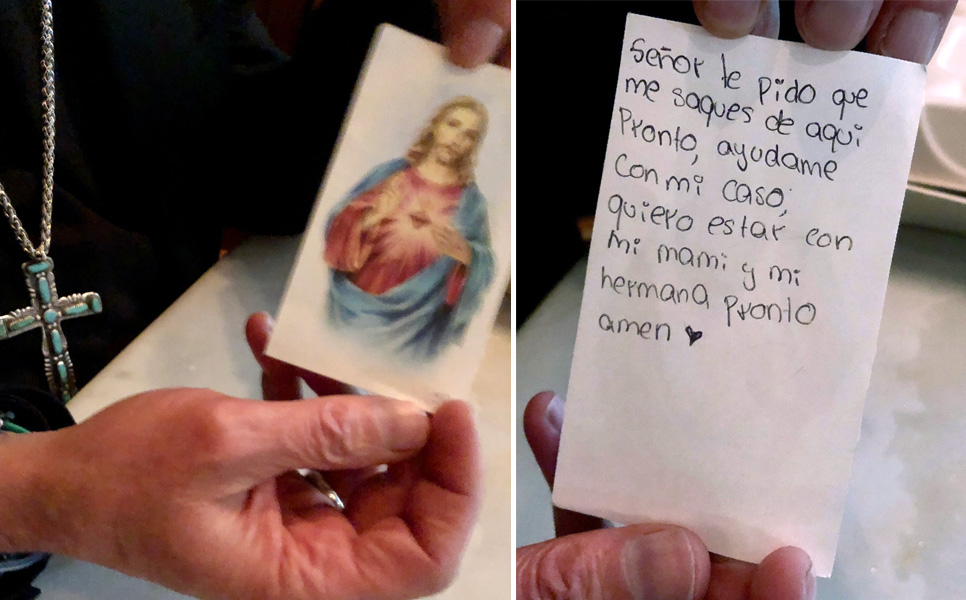 Señor te pido que
me saques de aqui
Pronto, ayudame
Con mi caso,
quiero estar con
mi mami y mi
hermana pronto
amen ♥